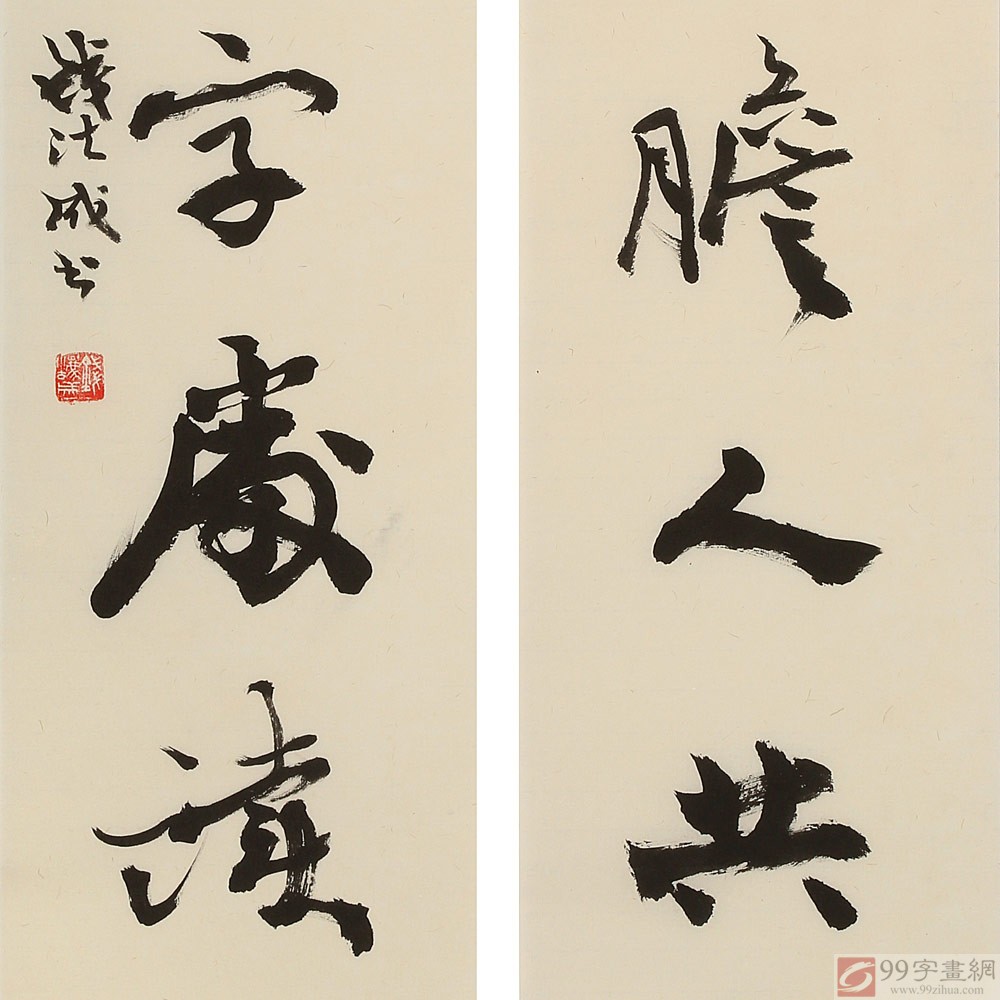 膽人共
字處讀
錢法成書
99字畫網
www.99zihua.com